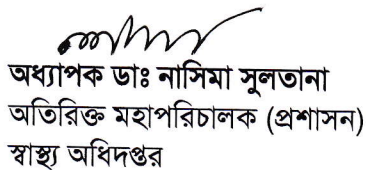 অধ্যাপক ডাঃ নাসিমা সুলতানা
অতিরিক্ত মহাপরিচালক (প্রশাসন)
স্বাস্থ্য অধিদপ্তর